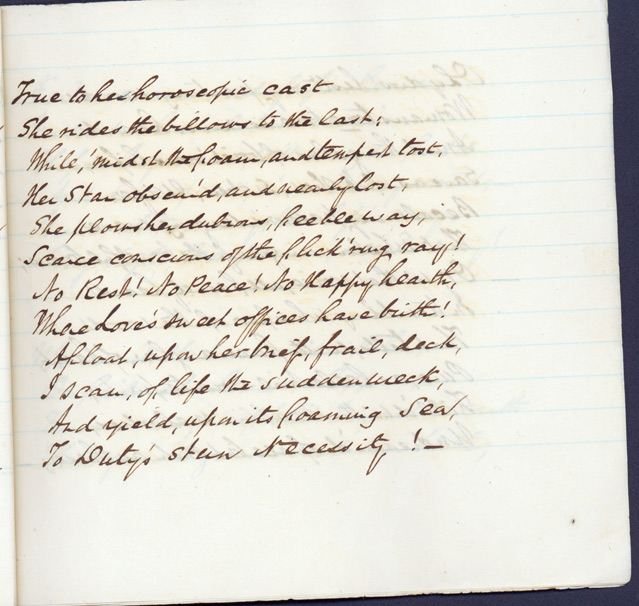 True to her horoscopic cast
She rides the billows to the last;
While, 'midst the foam, and tempest tost,
Her Star obscur'd, and nearly lost,
She plows her dubious, feeble way,
Scarce conscious of the flick'ring ray!
No Rest! No Peace! No Happy hearth,
Where Love's sweet offices have birth!
Afloat, upon her brief, frail, deck,
I scan, of life the sudden wreck,
And yield, upon its foaming Sea,
To Duty's stern Necessity! —